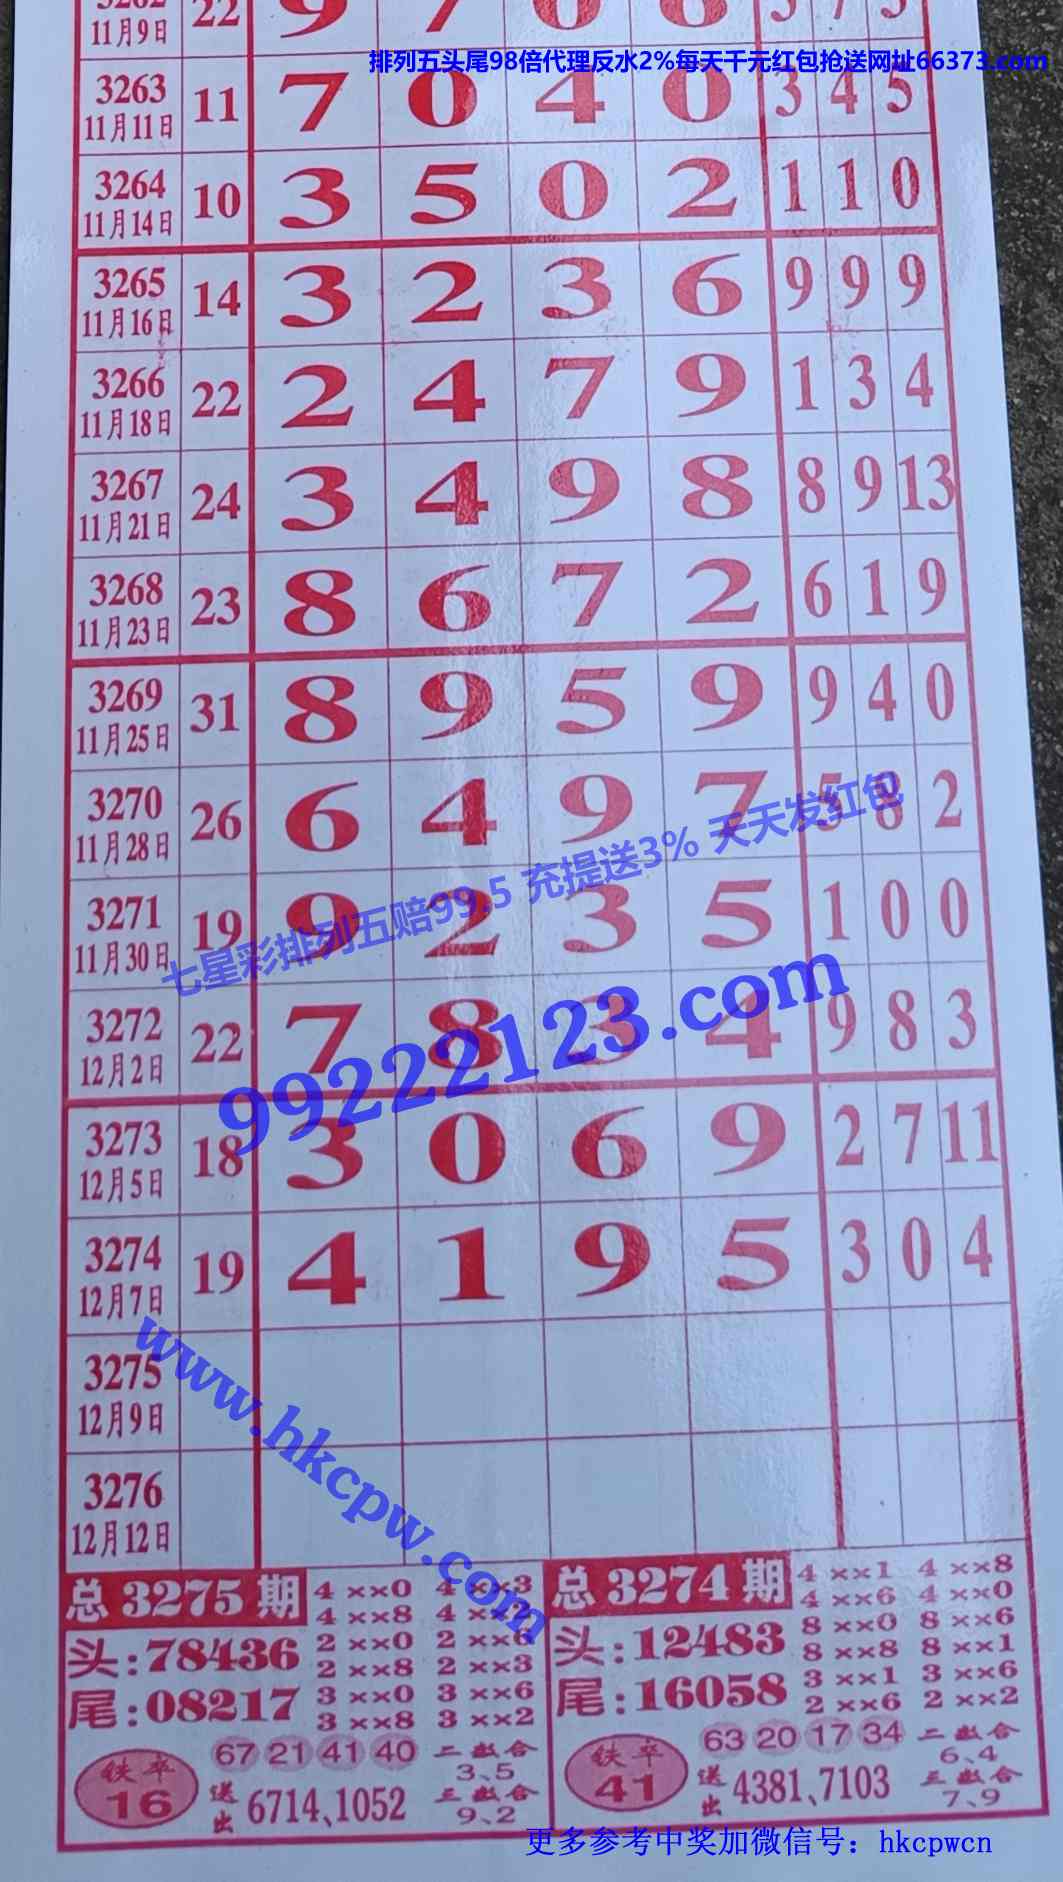 11月9日 22 9 7 0 8 3 7 5
排列五头尾98倍代理反水2%每天千元红包抢送网址66373.com
3263 11月11日 11 7 0 4 0 3 4 5
3264 11月14日 10 3 5 0 2 1 1 0
3265 11月16日 14 3 2 3 6 9 9 9
3266 11月18日 22 2 4 7 9 1 3 4
3267 11月21日 24 3 4 9 8 8 9 13
3268 11月23日 23 8 6 7 2 6 1 9
3269 11月25日 31 8 9 5 9 9 4 0
3270 11月28日 26 6 4 9 7 5 8 2
七星彩排列五赔99.5 充提送3% 天天发红包
3271 11月30日 19 9 2 3 5 1 0 0
99222123.com
3272 12月2日 22 7 8 3 4 9 8 3
3273 12月5日 18 3 0 6 9 2 7 11
3274 12月7日 19 4 1 9 5 3 0 4
3275 12月9日
www.hkcpw.com
3276 12月12日
总3275期
4××0 4××3
4××8 4××2
头:78436
2××0 2××6
2××8 2××3
尾:08217
3××0 3××6
3××8 3××2
铁卒 16
67 21 41 40
送出 6714、1052
二数合 3、5
三数合 9、2
总3274期
4××1 4××8
4××6 4××0
头:12483
8××0 8××6
8××8 8××1
尾:16058
3××1 3××6
2××6 2××2
铁卒 41
63 20 17 34
送出 4381、7103
二数合 6、4
三数合 7、9
更多参考中奖加微信号：hkcpwcn